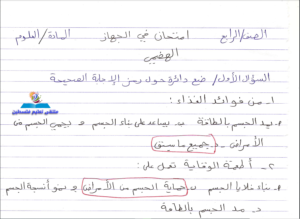 الصف/الرابع امتحان في الجهاز المادة/العلوم
الهضمي
السؤال الأول/ ضع دائرة حول رمز الإجابة الصحيحة
١- من فوائد الغذاء:
يمد الجسم بالطاقة ب. يساعد على بناء الجسم ج. يحمي الجسم من
الأمراض د. جميع ما سبق
ملتقى تعليم فلسطين
٢- أطعمة الوقاية تعمل على:
بناء خلايا الجسم ب. حماية الجسم من الأمراض ج. نمو أنسجة الجسم
د. مد الجسم بالطاقة